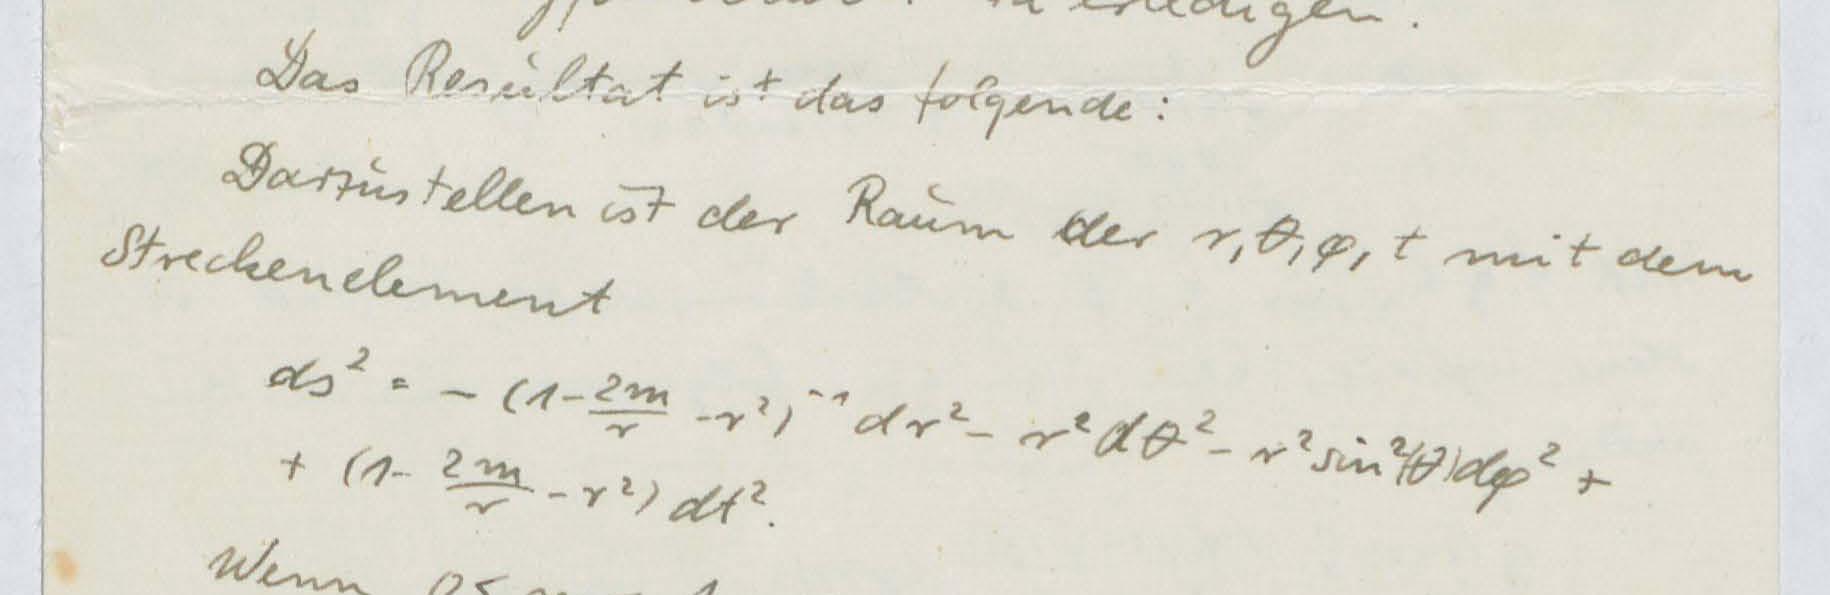 zu erledigen.
Das Resultat ist das folgende:
Darzustellen ist der Raum der r, θ, φ, t mit dem
Streckenelement
ds² = − (1 − 2m/r − r²)⁻¹ dr² − r² dθ² − r² sin²(θ) dφ² +
+ (1 − 2m/r − r²) dt².
Wenn